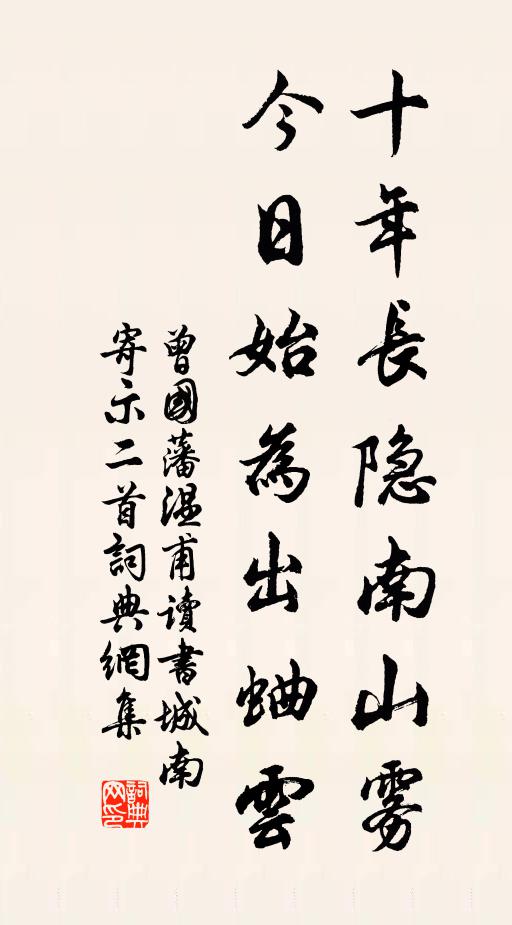 十年長隐南山雾
今日始為出岫雲
曾國藩温甫讀書城南
寄示二首詞典網集
詞典网印